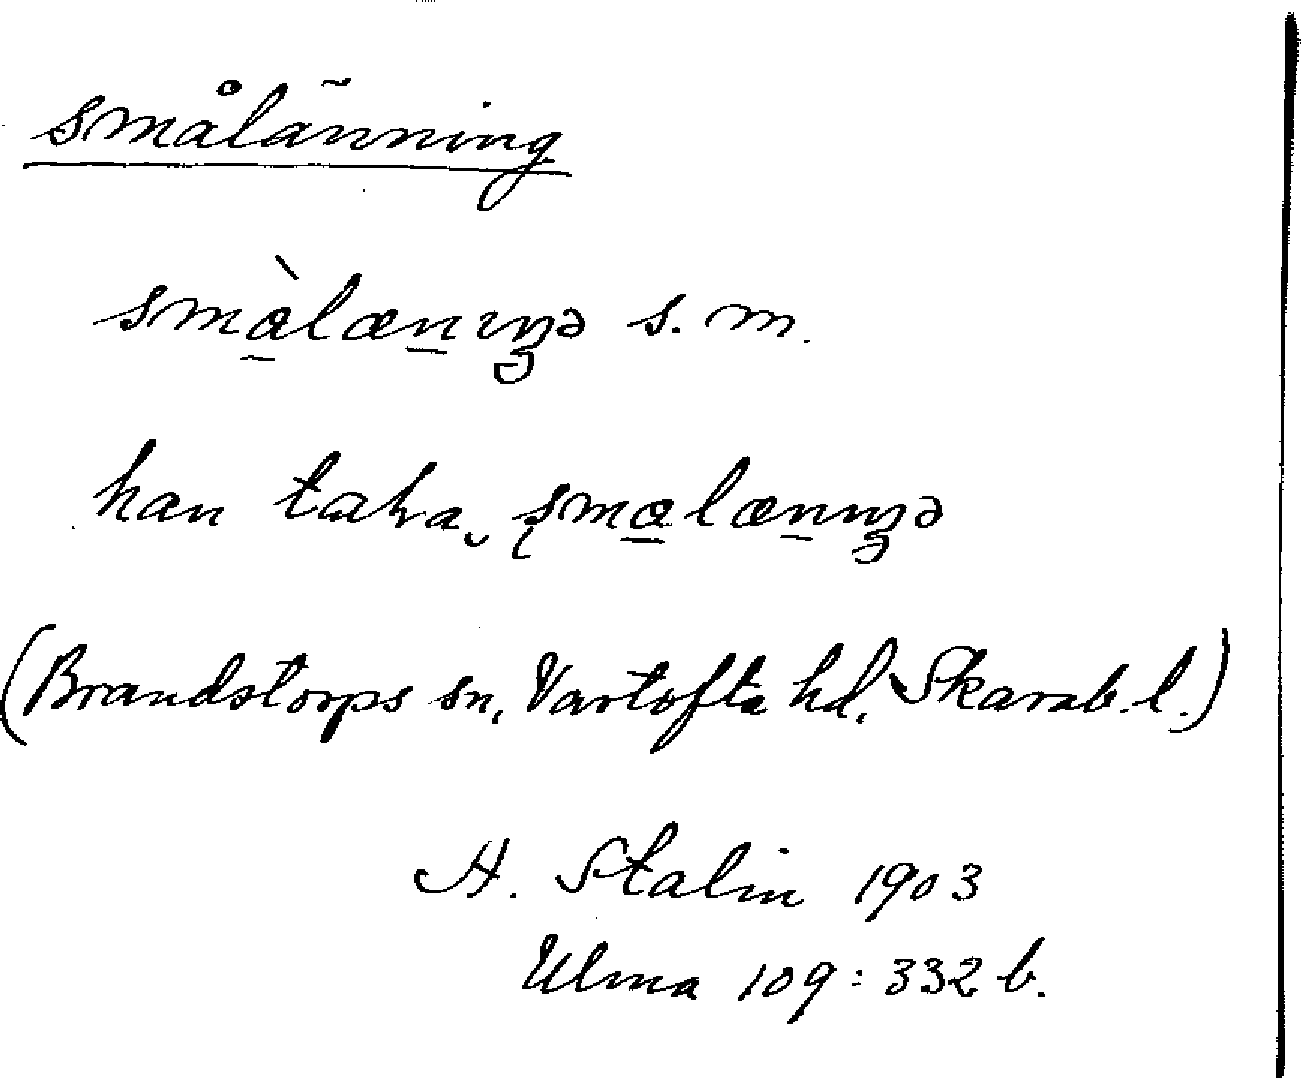 smålänning
smàlænıŋə s. m.
han taka smalænıŋə
(Brandstorps sn, Vartofta hd, Skarab. l.)
H. Stalin 1903
Ulma 109:332 b.